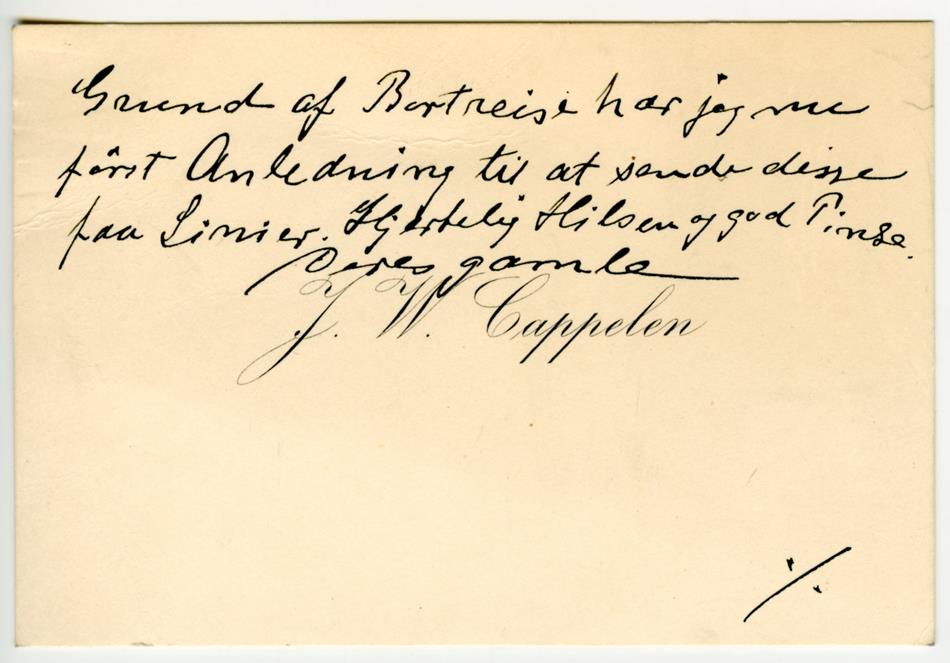 Grund af Bortreise har jeg nu
först Anledning til at sende disse
faa Linier. Hjertelig Hilsen og god Pinse.
Deres gamle
J. W. Cappelen
./.